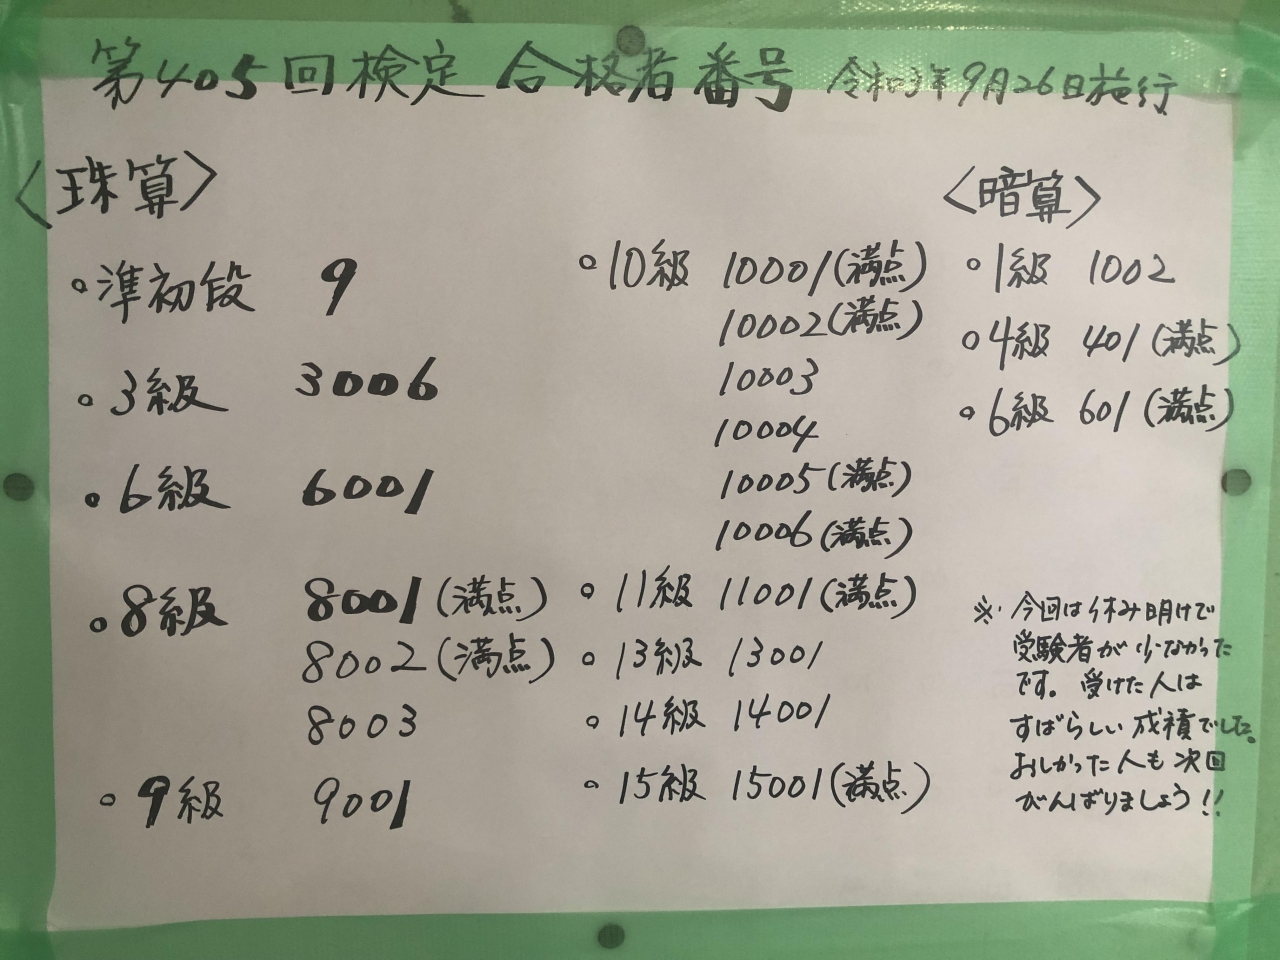 第405回検定 合格者番号 令和3年9月26日施行
〈珠算〉
。準初段 9
。3級 3006
。6級 6001
。8級 8001(満点)
8002(満点)
8003
。9級 9001
。10級 10001(満点)
10002(満点)
10003
10004
10005(満点)
10006(満点)
。11級 11001(満点)
。13級 13001
。14級 14001
。15級 15001(満点)
〈暗算〉
。1級 1002
。4級 401(満点)
。6級 601(満点)
※今回は休み明けで
受験者が少なかった
です。受けた人は
すばらしい成績でした。
おしかった人も次回
がんばりましょう!!